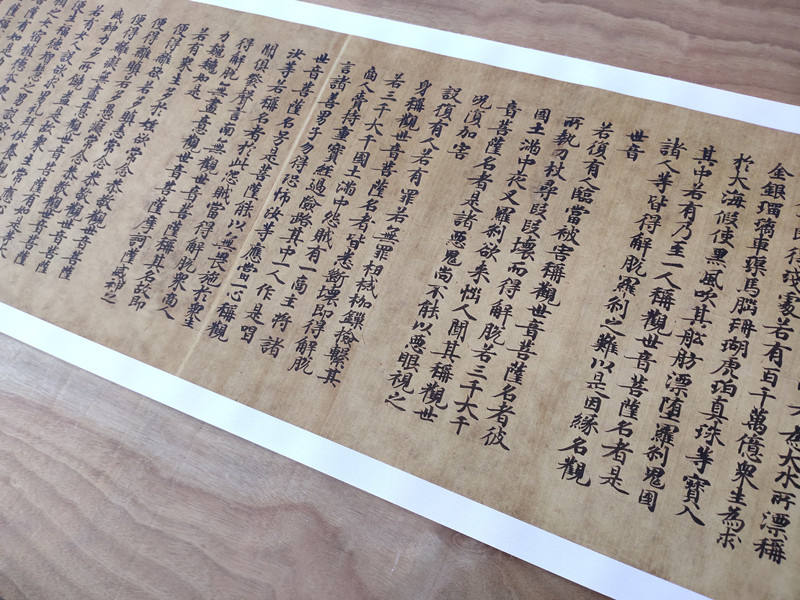 為大水所漂稱
即得淺處若有百千萬億眾生為求
金銀瑠璃車渠馬腦珊瑚虎珀真珠等寶入
於大海假使黑風吹其舩舫漂墮羅剎鬼國
其中若有乃至一人稱觀世音菩薩名者是
諸人等皆得解脫羅剎之難以是因緣名觀
世音
若復有人臨當被害稱觀世音菩薩名者彼
所執刀杖尋段段壞而得解脫若三千大千
國土滿中夜叉羅剎欲來惱人聞其稱觀世
音菩薩名者是諸惡鬼尚不能以惡眼視之
況復加害
設復有人若有罪若無罪杻械枷鏁撿繫其
身稱觀世音菩薩名者皆悉斷壞即得解脫
若三千大千國土滿中怨賊有一商主將諸
商人賷持重寶經過嶮路其中一人作是唱
言諸善男子勿得恐怖汝等應當一心稱觀
世音菩薩名号是菩薩能以無畏施於眾生
汝等若稱名者於此怨賊當得解脫眾商人
聞俱發聲言南無觀世音菩薩稱其名故即
得解脫無盡意觀世音菩薩摩訶薩威神之
力巍巍如是
若有眾生多於婬欲常念恭敬觀世音菩薩
便得離欲若多瞋恚常念恭敬觀世音菩薩
便得離瞋若多愚癡常念恭敬觀世音菩薩
便得離癡無盡意觀世音菩薩有如是等大
威神力多所饒益是故眾生常應心